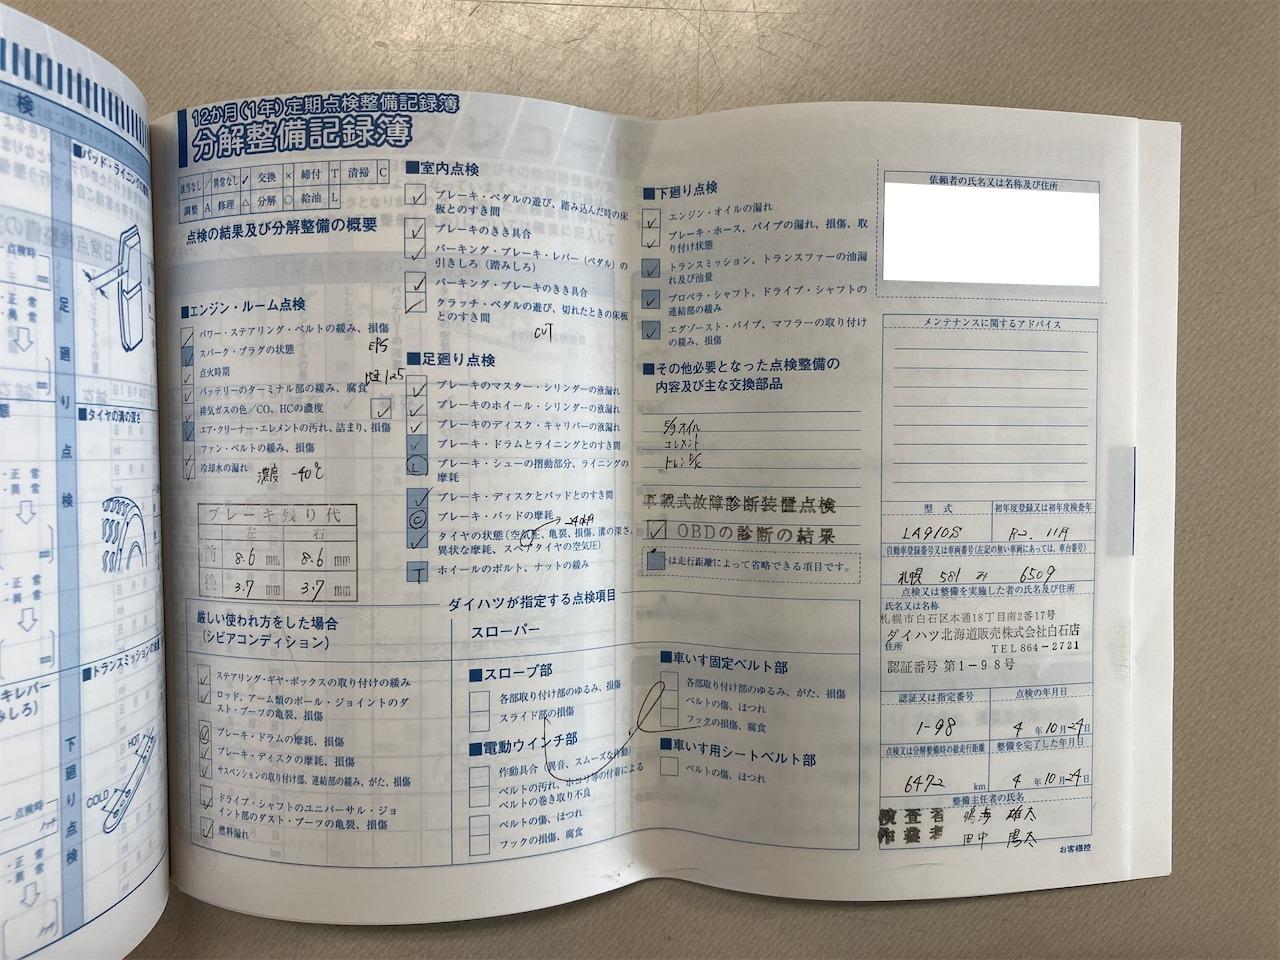 検
■パッド・ライニングの
足廻り点検
■タイヤの溝の深さ
■トランスミッションの
下廻り点検
HOT
COLD
12か月(1年)定期点検整備記録簿
分解整備記録簿
該当なし ／ 異常なし ✓ 交換 × 締付 T 清掃 C
調整 A 修理 △ 分解 ○ 給油 L
点検の結果及び分解整備の概要
■エンジン・ルーム点検
パワー・ステアリング・ベルトの緩み、損傷
EPS
スパーク・プラグの状態
点火時期
バッテリーのターミナル部の緩み、腐食
排気ガスの色/CO、HCの濃度
エア・クリーナー・エレメントの汚れ、詰まり、損傷
ファン・ベルトの緩み、損傷
冷却水の漏れ
濃度 -40℃
ブレーキ残り代
左 右
前 8.6 mm 8.6 mm
後 3.7 mm 3.7 mm
厳しい使われ方をした場合
(シビアコンディション)
ステアリング・ギヤ・ボックスの取り付けの緩み
ロッド、アーム類のボール・ジョイントのダ
スト・ブーツの亀裂、損傷
ブレーキ・ドラムの摩耗、損傷
ブレーキ・ディスクの摩耗、損傷
サスペンションの取り付け部、連結部の緩み、がた、損傷
ドライブ・シャフトのユニバーサル・ジョ
イント部のダスト・ブーツの亀裂、損傷
燃料漏れ
■室内点検
ブレーキ・ペダルの遊び、踏み込んだ時の床
板とのすき間
ブレーキのきき具合
パーキング・ブレーキ・レバー(ペダル)の
引きしろ(踏みしろ)
パーキング・ブレーキのきき具合
クラッチ・ペダルの遊び、切れたときの床板
とのすき間
CVT
■足廻り点検
ブレーキのマスター・シリンダーの液漏れ
ブレーキのホイール・シリンダーの液漏れ
ブレーキのディスク・キャリパーの液漏れ
ブレーキ・ドラムとライニングとのすき間
L
ブレーキ・シューの摺動部分、ライニングの
摩耗
ブレーキ・ディスクとパッドとのすき間
C
ブレーキ・パッドの摩耗
タイヤの状態(空気圧、亀裂、損傷、溝の深さ、
異状な摩耗、スペアタイヤの空気圧)
T
ホイールのボルト、ナットの緩み
ダイハツが指定する点検項目
スローパー
■スロープ部
各部取り付け部のゆるみ、損傷
スライド部の損傷
■電動ウインチ部
作動具合(異音、スムーズな作動)
ベルトの汚れ、ホコリ等の付着による
ベルトの巻き取り不良
ベルトの傷、ほつれ
フックの損傷、腐食
■下廻り点検
エンジン・オイルの漏れ
ブレーキ・ホース、パイプの漏れ、損傷、取
り付け状態
トランスミッション、トランスファーの油漏
れ及び油量
プロペラ・シャフト、ドライブ・シャフトの
連結部の緩み
エグゾースト・パイプ、マフラーの取り付け
の緩み、損傷
■その他必要となった点検整備の
内容及び主な交換部品
E/gオイル
エレメント
ドレンP/K
車載式故障診断装置点検
OBDの診断の結果
は走行距離によって省略できる項目です。
■車いす固定ベルト部
各部取り付け部のゆるみ、がた、損傷
ベルトの傷、ほつれ
フックの損傷、腐食
■車いす用シートベルト部
ベルトの傷、ほつれ
依頼者の氏名又は名称及び住所
メンテナンスに関するアドバイス
型式 初年度登録又は初年度検査年
LA910S R-2. 11月
自動車登録番号又は車両番号(左記の無い車両にあっては、車台番号)
札幌 581 み 6509
点検又は整備を実施した者の氏名及び住所
氏名又は名称
札幌市白石区本通18丁目南2番17号
ダイハツ北海道販売株式会社白石店
住所 TEL864-2721
認証番号 第1-98号
認証又は指定番号 点検の年月日
1-98 4年10月29日
点検又は分解整備時の総走行距離 整備を完了した年月日
6472 km 4年10月29日
整備主任者の氏名
検査者 鳴海 雄大
作業者 田中 陽太
お客様控